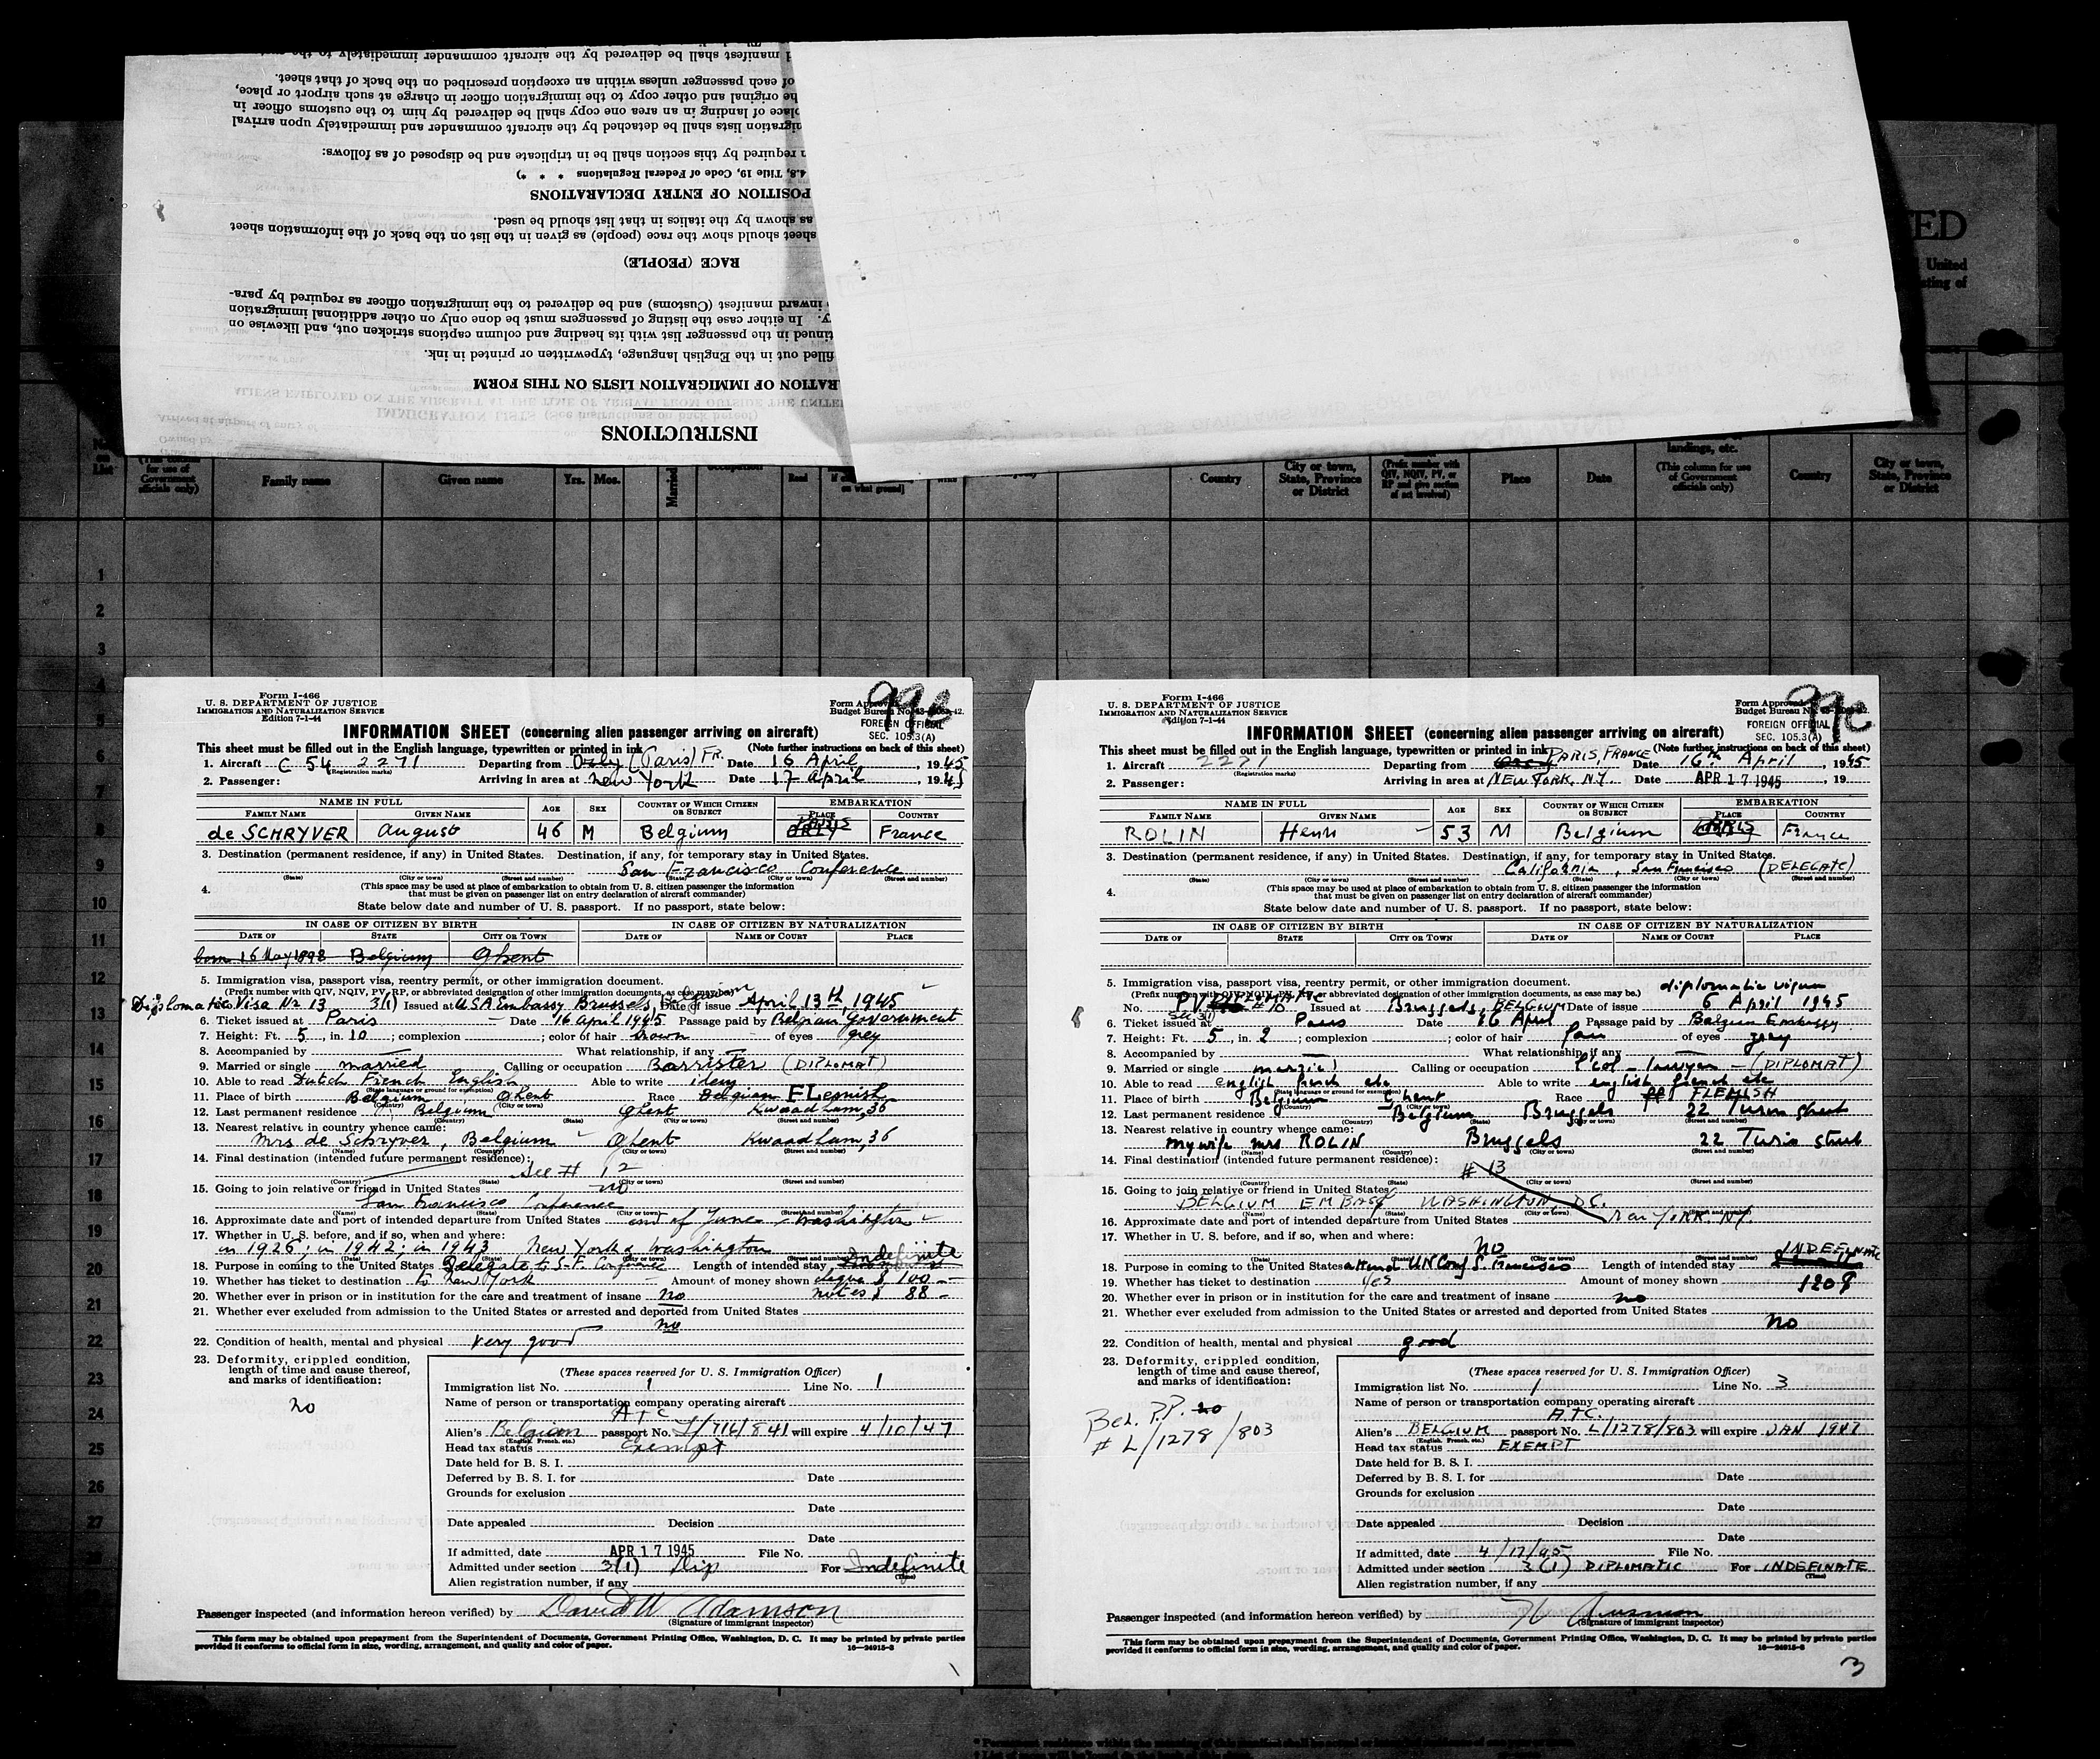 INSTRUCTIONS
RATION OF IMMIGRATION LISTS ON THIS FORM
filled out in the English language, typewritten or printed in ink.
tinued in the passenger list with its heading and column captions stricken out, and likewise on
y. In either case the listing of passengers must be done only on other additional immigration
inward manifest (Customs) and be delivered to the immigration officer as required by para-
RACE (PEOPLE)
sheet should show the race (people) as given in the list on the back of the information sheet
as shown by the italics in that list should be used.
POSITION OF ENTRY DECLARATIONS
4.8, Title 19, Code of Federal Regulations * * *)
n required by this section shall be in triplicate and be disposed of as follows:
igration lists shall be detached by the aircraft commander and immediately upon arrival
place of landing in an area one copy shall be delivered by him to the customs officer in
he original and other copy to the immigration officer in charge at such airport or place,
of each passenger unless within an exception prescribed on the back of that sheet.
d manifest shall be delivered by the aircraft commander immediately to the
ED
United
sting of
Family name Given name Yrs. Mos. Married Read
Country City or town, State, Province or District Place Date landings, etc. (This column for use of Government officials only) Country City or town, State, Province or District
1
2
3
4
5
6
7
8
9
10
11
12
13
14
15
16
17
18
19
20
21
22
23
24
25
26
27
28
Form I-466
U. S. DEPARTMENT OF JUSTICE
IMMIGRATION AND NATURALIZATION SERVICE
Edition 7-1-44
Form Approved
Budget Bureau No.
99c
FOREIGN OFFICIAL
SEC. 105.3(A)
INFORMATION SHEET (concerning alien passenger arriving on aircraft)
This sheet must be filled out in the English language, typewritten or printed in ink (Note further instructions on back of this sheet)
1. Aircraft C 54 2271 Departing from Orly (Paris) FR. Date 16 April, 1945
(Registration marks)
2. Passenger: Arriving in area at New York Date 17 April, 1945
NAME IN FULL AGE SEX COUNTRY OF WHICH CITIZEN OR SUBJECT EMBARKATION
FAMILY NAME GIVEN NAME PLACE COUNTRY
de SCHRYVER August 46 M Belgium PARIS ORLY France
3. Destination (permanent residence, if any) in United States. Destination, if any, for temporary stay in United States.
San Francisco Conference
(State) (City or town) (Street and number) (State) (City or town) (Street and number)
4. (This space may be used at place of embarkation to obtain from U. S. citizen passenger the information
that must be given on passenger list on entry declaration of aircraft commander)
State below date and number of U. S. passport. If no passport, state below:
IN CASE OF CITIZEN BY BIRTH IN CASE OF CITIZEN BY NATURALIZATION
DATE OF STATE CITY OR TOWN DATE OF NAME OF COURT PLACE
born 16 May 1898 Belgium Ghent
5. Immigration visa, passport visa, reentry permit, or other immigration document.
(Prefix number with QIV, NQIV, PV, RP, or abbreviated designation of other immigration documents, as case may be.)
Diplomatic Visa Nr 13 3(1) Issued at USA Embassy Brussels, Belgium Date of issue April, 13th, 1945
6. Ticket issued at Paris Date 16 April 1945 Passage paid by Belgian Government
7. Height: Ft. 5, in. 10; complexion ; color of hair brown of eyes grey
8. Accompanied by What relationship, if any
9. Married or single married Calling or occupation Barrister (DIPLOMAT)
10. Able to read Dutch French English Able to write idem
(State language or ground for exemption)
11. Place of birth Belgium Ghent Race Belgian FLemish
(Country) (City or town)
12. Last permanent residence Belgium Ghent Kwaadham, 36
13. Nearest relative in country whence came:
Mrs de Schryver, Belgium Ghent Kwaadham, 36
(Name) (Country) (City or town) (Street and number)
14. Final destination (intended future permanent residence): See # 12
(Country) (State) (City or town) (Street and number)
15. Going to join relative or friend in United States no
San Francisco Conference
(Name) (State) (City or town) (Street and number)
16. Approximate date and port of intended departure from United States end of June Washington
17. Whether in U. S. before, and if so, when and where:
in 1926; in 1942; in 1943 New York & Washington
(Date) (State) (City or town) (Street and number)
18. Purpose in coming to the United States Delegate to S-F. Conference Length of intended stay Indefinite
19. Whether has ticket to destination to New York Amount of money shown $ 100 -
20. Whether ever in prison or in institution for the care and treatment of insane no notes $ 88 -
21. Whether ever excluded from admission to the United States or arrested and deported from United States
no
22. Condition of health, mental and physical very good
23. Deformity, crippled condition,
length of time and cause thereof,
and marks of identification:
no
(These spaces reserved for U. S. Immigration Officer)
Immigration list No. 1 Line No. 1
Name of person or transportation company operating aircraft
ATC
Alien's Belgian passport No. L/716/841 will expire 4/10/47
(English, French, etc.)
Head tax status Exempt
Date held for B. S. I.
Deferred by B. S. I. for Date
Grounds for exclusion
Date
Date appealed Decision
Date
If admitted, date APR 17 1945 File No.
Admitted under section 3(1) Dip For Indefinite
(Time)
Alien registration number, if any
Passenger inspected (and information hereon verified) by David W Adamson
(Signature of immigrant inspector)
This form may be obtained upon prepayment from the Superintendent of Documents, Government Printing Office, Washington, D. C. It may be printed by private parties
provided it conforms to official form in size, wording, arrangement, and quality and color of paper. 16—24915-2
1
Form I-466
U. S. DEPARTMENT OF JUSTICE
IMMIGRATION AND NATURALIZATION SERVICE
Edition 7-1-44
Form Approved
Budget Bureau No.
99c
FOREIGN OFFICIAL
SEC. 105.3(A)
INFORMATION SHEET (concerning alien passenger arriving on aircraft)
This sheet must be filled out in the English language, typewritten or printed in ink (Note further instructions on back of this sheet)
1. Aircraft 2271 Departing from PARIS, FRANCE Date 16th April, 1945
(Registration marks)
2. Passenger: Arriving in area at NEW YORK, N.Y. Date APR 17 1945, 19
NAME IN FULL AGE SEX COUNTRY OF WHICH CITIZEN OR SUBJECT EMBARKATION
FAMILY NAME GIVEN NAME PLACE COUNTRY
ROLIN Henri 53 M Belgium PARIS France
3. Destination (permanent residence, if any) in United States. Destination, if any, for temporary stay in United States.
California, San Francisco (DELEGATE)
(State) (City or town) (Street and number) (State) (City or town) (Street and number)
4. (This space may be used at place of embarkation to obtain from U. S. citizen passenger the information
that must be given on passenger list on entry declaration of aircraft commander)
State below date and number of U. S. passport. If no passport, state below:
IN CASE OF CITIZEN BY BIRTH IN CASE OF CITIZEN BY NATURALIZATION
DATE OF STATE CITY OR TOWN DATE OF NAME OF COURT PLACE
5. Immigration visa, passport visa, reentry permit, or other immigration document.
(Prefix number with QIV, NQIV, PV, RP, or abbreviated designation of other immigration documents, as case may be.) diplomatic visum
No. Sec 3(1) Issued at Brussels, BELGIUM Date of issue 6 April 1945
6. Ticket issued at Paris Date 16 April Passage paid by Belgian Embassy
7. Height: Ft. 5, in. 2; complexion ; color of hair of eyes grey
8. Accompanied by What relationship, if any
9. Married or single married Calling or occupation lawyer (DIPLOMAT)
10. Able to read english french etc Able to write english french etc
(State language or ground for exemption)
11. Place of birth Belgium Ghent Race FLEMISH
(Country) (City or town)
12. Last permanent residence Belgium Brussels 22 Turin street
(Country) (State) (City or town) (Street and number)
13. Nearest relative in country whence came:
my wife mrs ROLIN Brussels 22 Turin street
(Name) (Country) (City or town) (Street and number)
14. Final destination (intended future permanent residence): # 13
(Country) (State) (City or town) (Street and number)
15. Going to join relative or friend in United States
BELGIUM EMBASSY WASHINGTON, D.C.
(Name) (State) (City or town) (Street and number)
16. Approximate date and port of intended departure from United States New YORK. N.Y.
17. Whether in U. S. before, and if so, when and where:
no
(Date) (State) (City or town) (Street and number)
18. Purpose in coming to the United States attend UN Conf S. Francisco Length of intended stay INDEFINATE
19. Whether has ticket to destination yes Amount of money shown
20. Whether ever in prison or in institution for the care and treatment of insane no
21. Whether ever excluded from admission to the United States or arrested and deported from United States
no
22. Condition of health, mental and physical good
23. Deformity, crippled condition,
length of time and cause thereof,
and marks of identification:
no
Bel. P.P.
# L/1278/803
(These spaces reserved for U. S. Immigration Officer)
Immigration list No. 1 Line No. 3
Name of person or transportation company operating aircraft
A.T.C.
Alien's BELGIUM passport No. L/1278/803 will expire JAN 1947
(English, French, etc.)
Head tax status EXEMPT
Date held for B. S. I.
Deferred by B. S. I. for Date
Grounds for exclusion
Date
Date appealed Decision
Date
If admitted, date 4/17/45 File No.
Admitted under section 3(1) DIPLOMATIC For INDEFINATE
(Time)
Alien registration number, if any
Passenger inspected (and information hereon verified) by
(Signature of immigrant inspector)
This form may be obtained upon prepayment from the Superintendent of Documents, Government Printing Office, Washington, D. C. It may be printed by private parties
provided it conforms to official form in size, wording, arrangement, and quality and color of paper. 16—24915-2
3